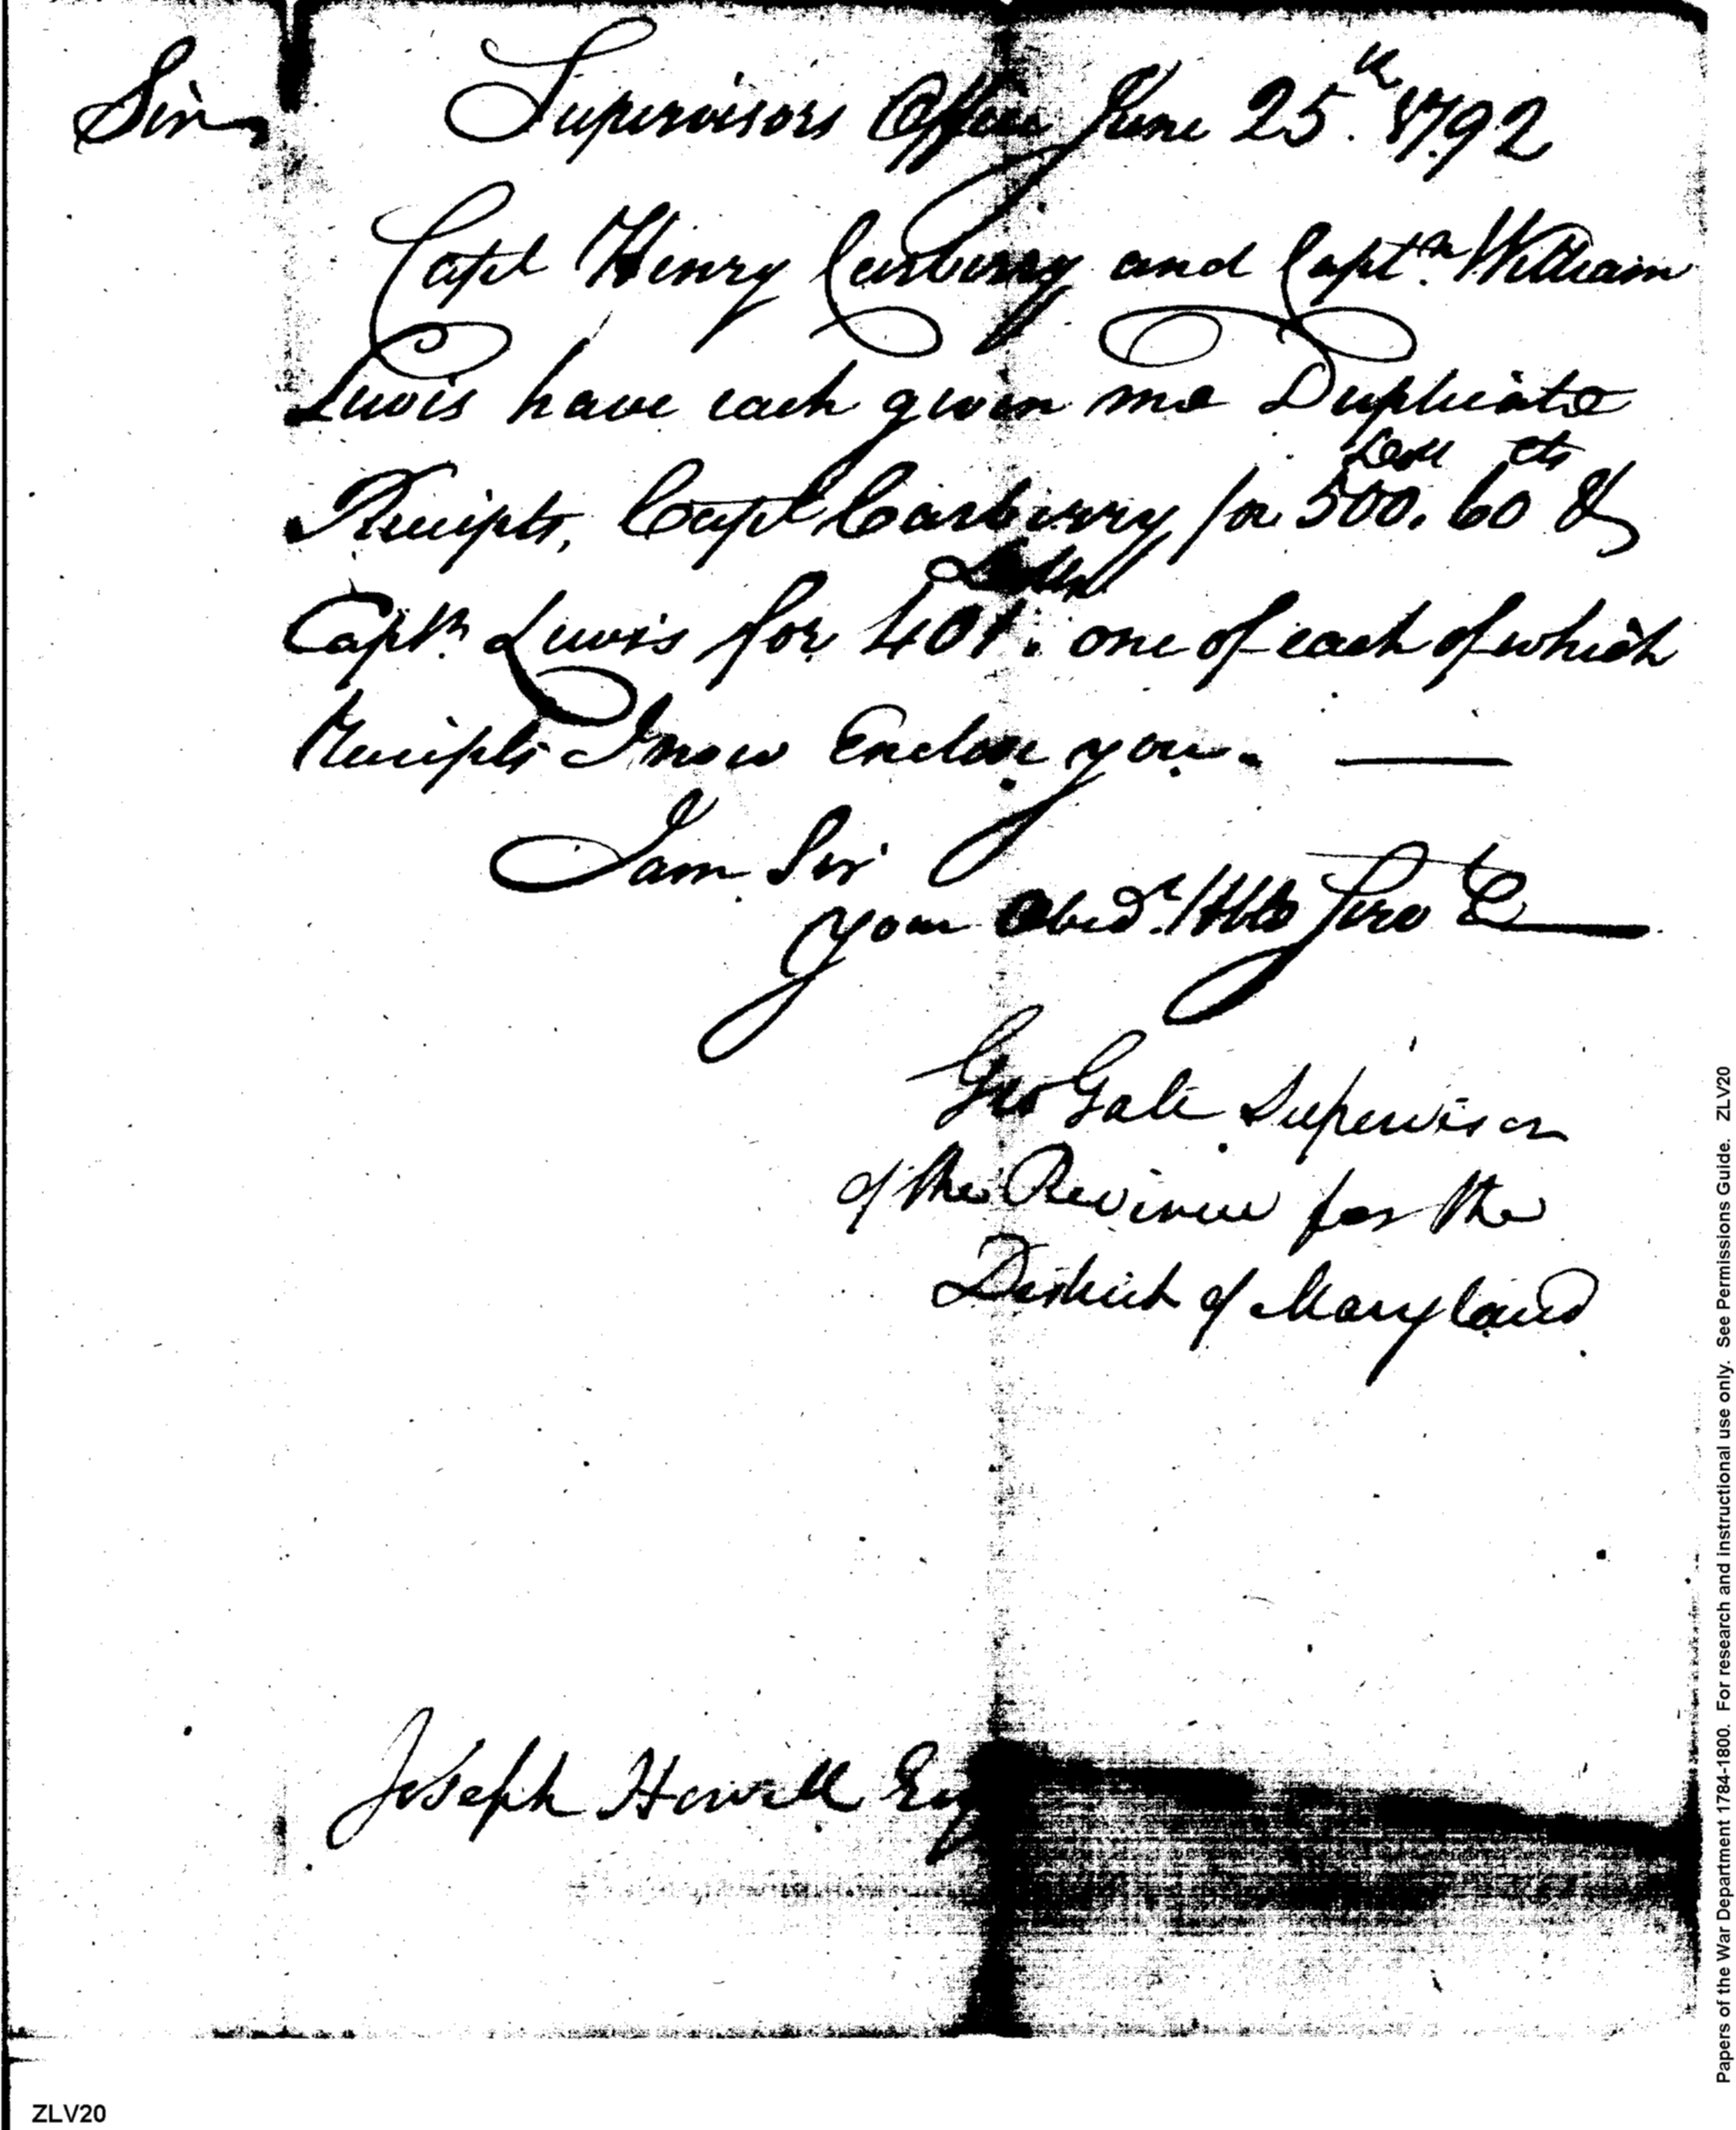 Sir, Supervisors Office June 25th. 1792
Capt Henry Carberry and Captn. William
Lewis have each given me Duplicate
Receipts, Capt Carberry for 500. Doll 60 cts &
Captn. Lewis for 401. Dolls one of each of which
Receipts I now Enclose you. —
I am Sir
your Obedt. Hble Servt
Geo Gale Supervisor
of the Revenue for the
District of Maryland
Joseph Howell Esq
Papers of the War Department 1784-1800. For research and instructional use only. See Permissions Guide. ZLV20
ZLV20